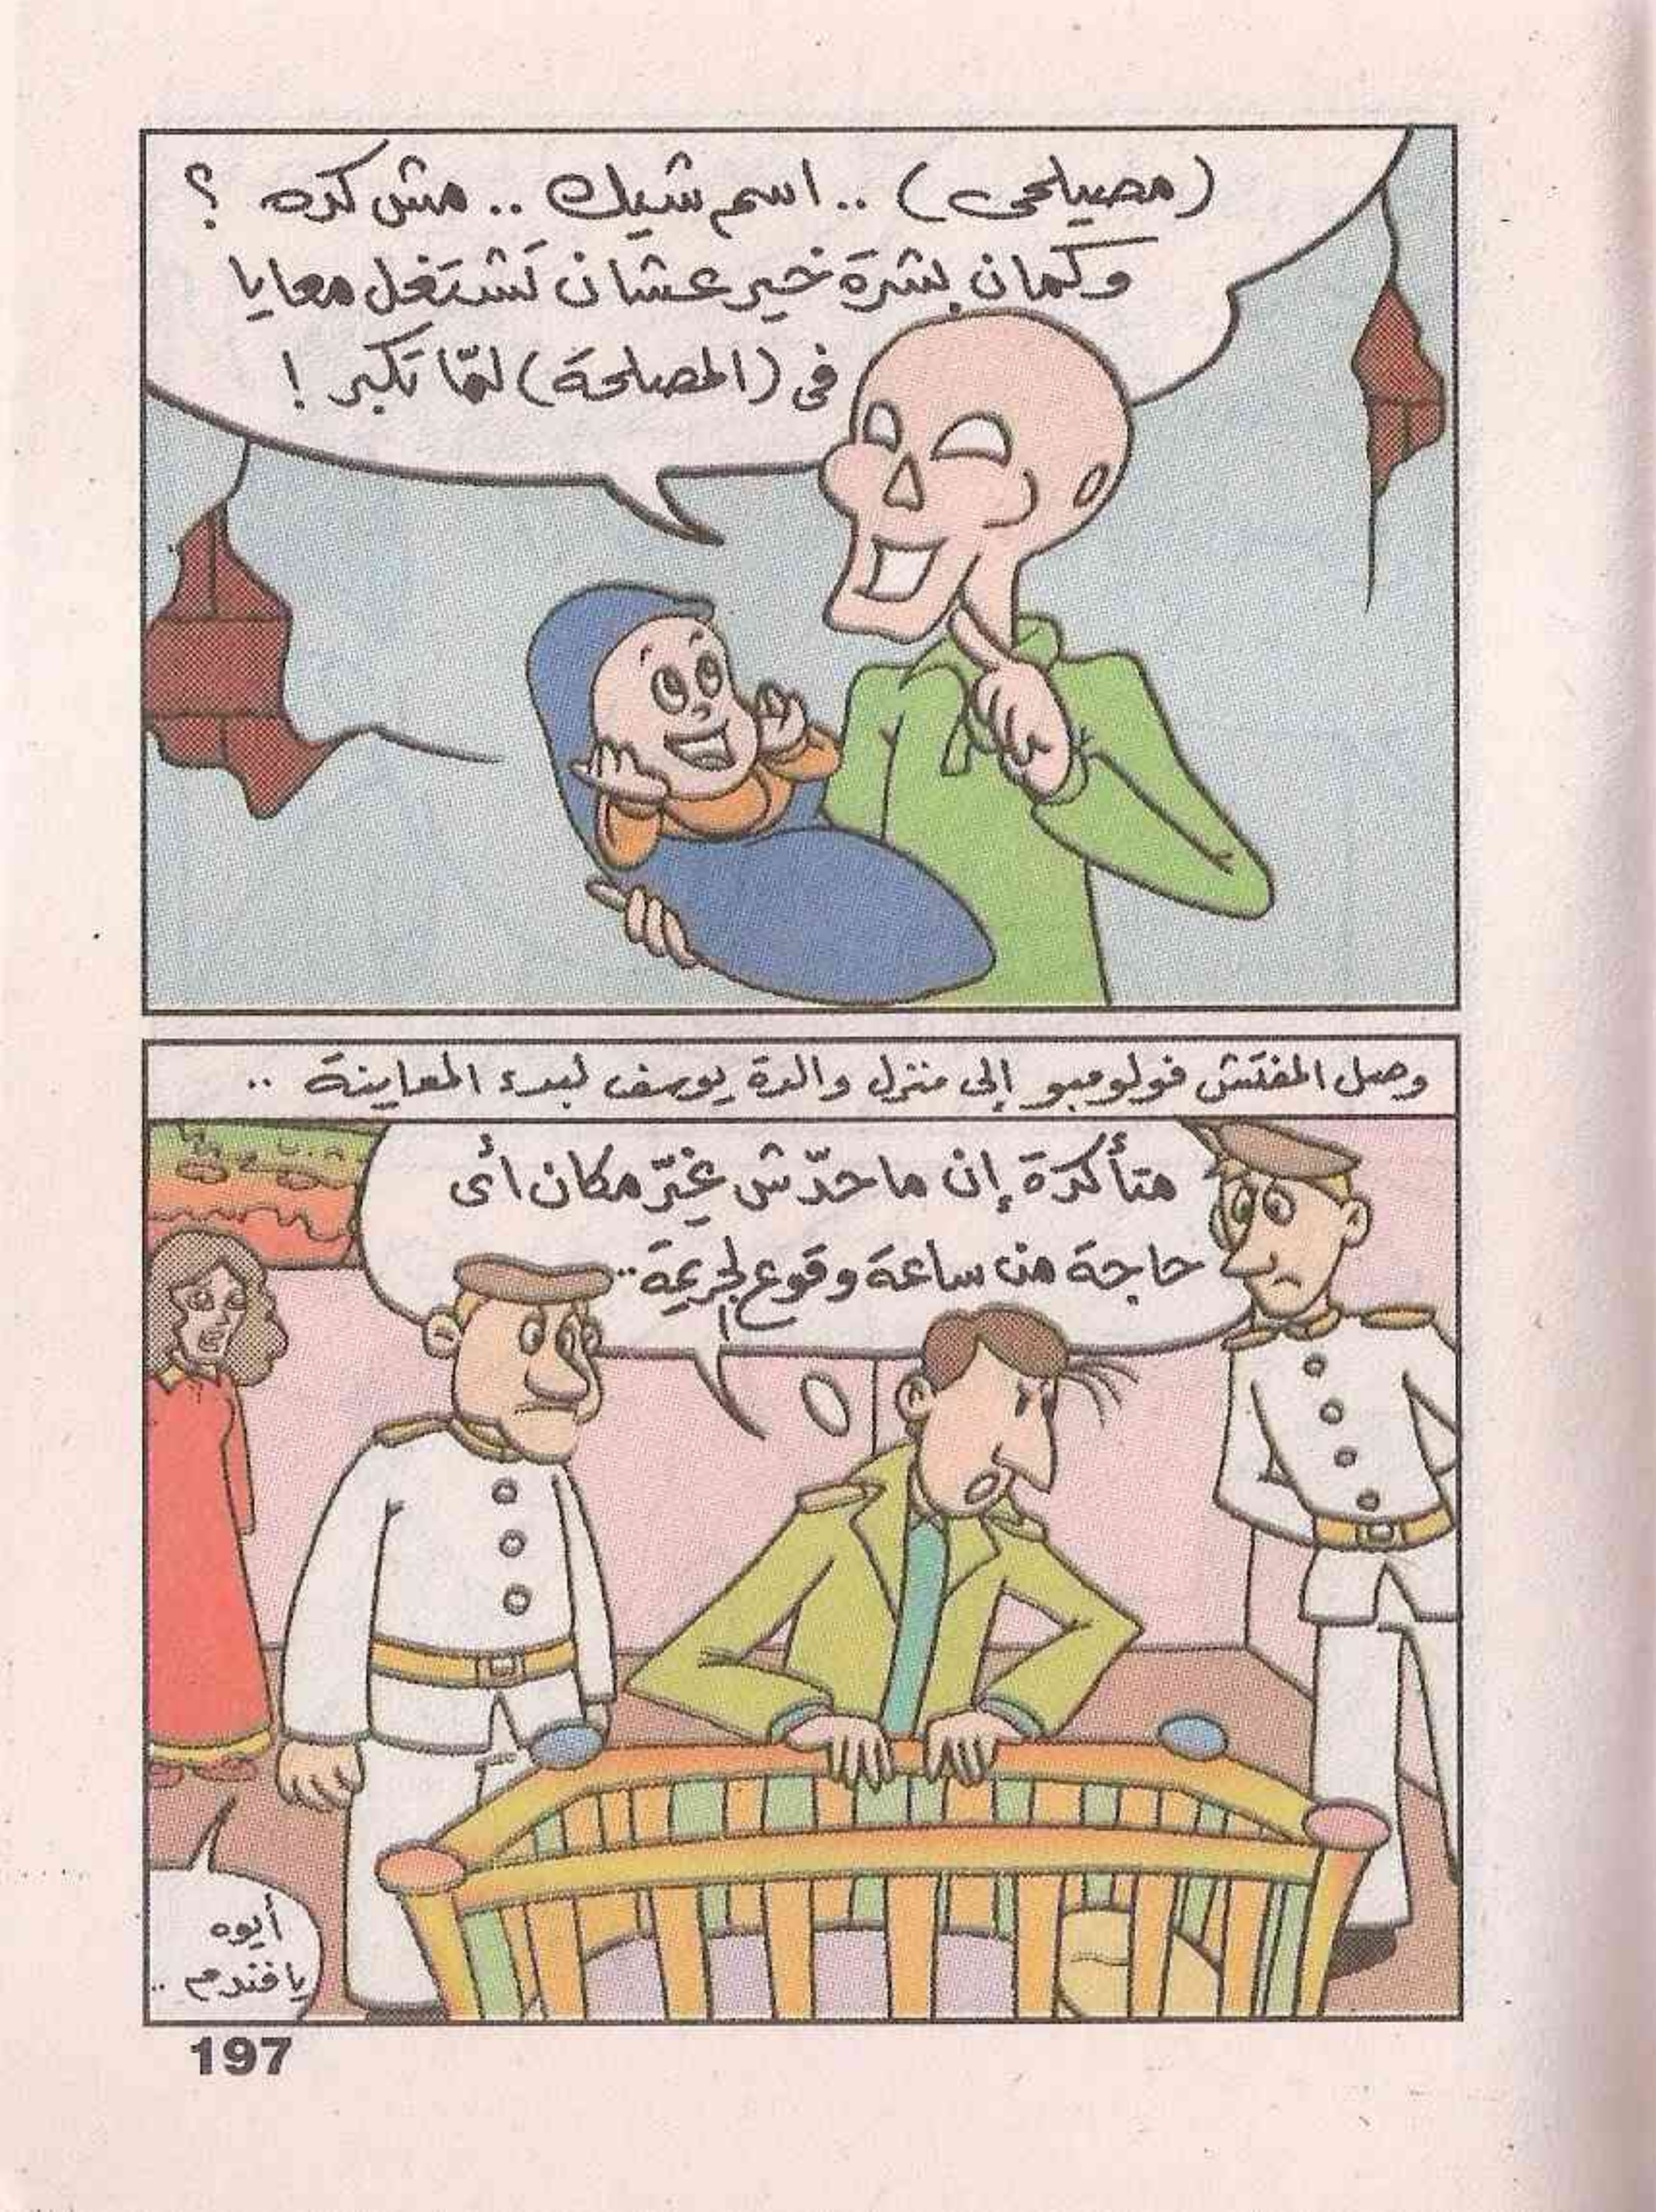 (مصيلحى) .. اسم شيك .. مش كده ؟
وكمان بشرة خير عشان تشتغل معايا
فى (المصلحة) لمّا تكبر !
وصل المفتش فولومبو إلى منزل والدة يوسف لبدء المعاينة ..
متأكدة إن ماحدّش غيّر مكان أى
حاجة من ساعة وقوع الجريمة ..
أيوه
يافندم ..
197